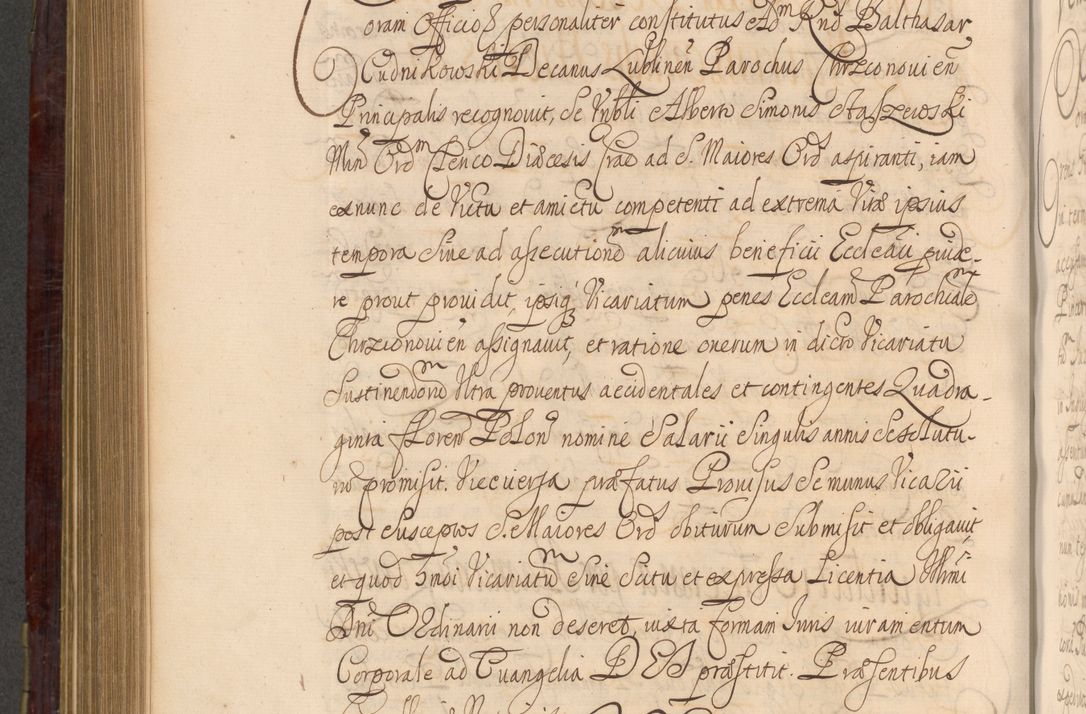 oram Officio personaliter constitutus Ad Rndus Balthasar
Cudnikowski Decanus Lublinen Parochus Chrzconovien
Principalis recognovit, Se Vnbli Alberto Simonis Staszewski
Min Ord Clerico Diæcesis Crac ad S. Maiores Ord aspiranti, iam
exnunc de Victu et amictu competenti ad extrema Vitæ ipsius
tempora Sive ad assecutionem alicuius beneficii Ecclesiastici
re prout providit, ipsiq; Vicariatum penes Eccleam Parochialem
Chrzconovien assignavit, et ratione onerum in dicto Vicariatu
Sustinendorum Vltra proventus accidentales et contingentes Quadra-
ginta Floren Polon nomine Salarii Singulis annis Se solutu-
rum promisit. Viceversa præfatus Provisus Se munus Vicarii
post Susceptos S. Maiores Ord obiturum Submisit et obligavit,
et quod Vicariatum Sine Scitu et expressa Licentia Illmi
Dni Ordinarii non deseret, iuxta formam Iuris iuramentum
Corporale ad Evangelia DEI præstitit. Præsentibus